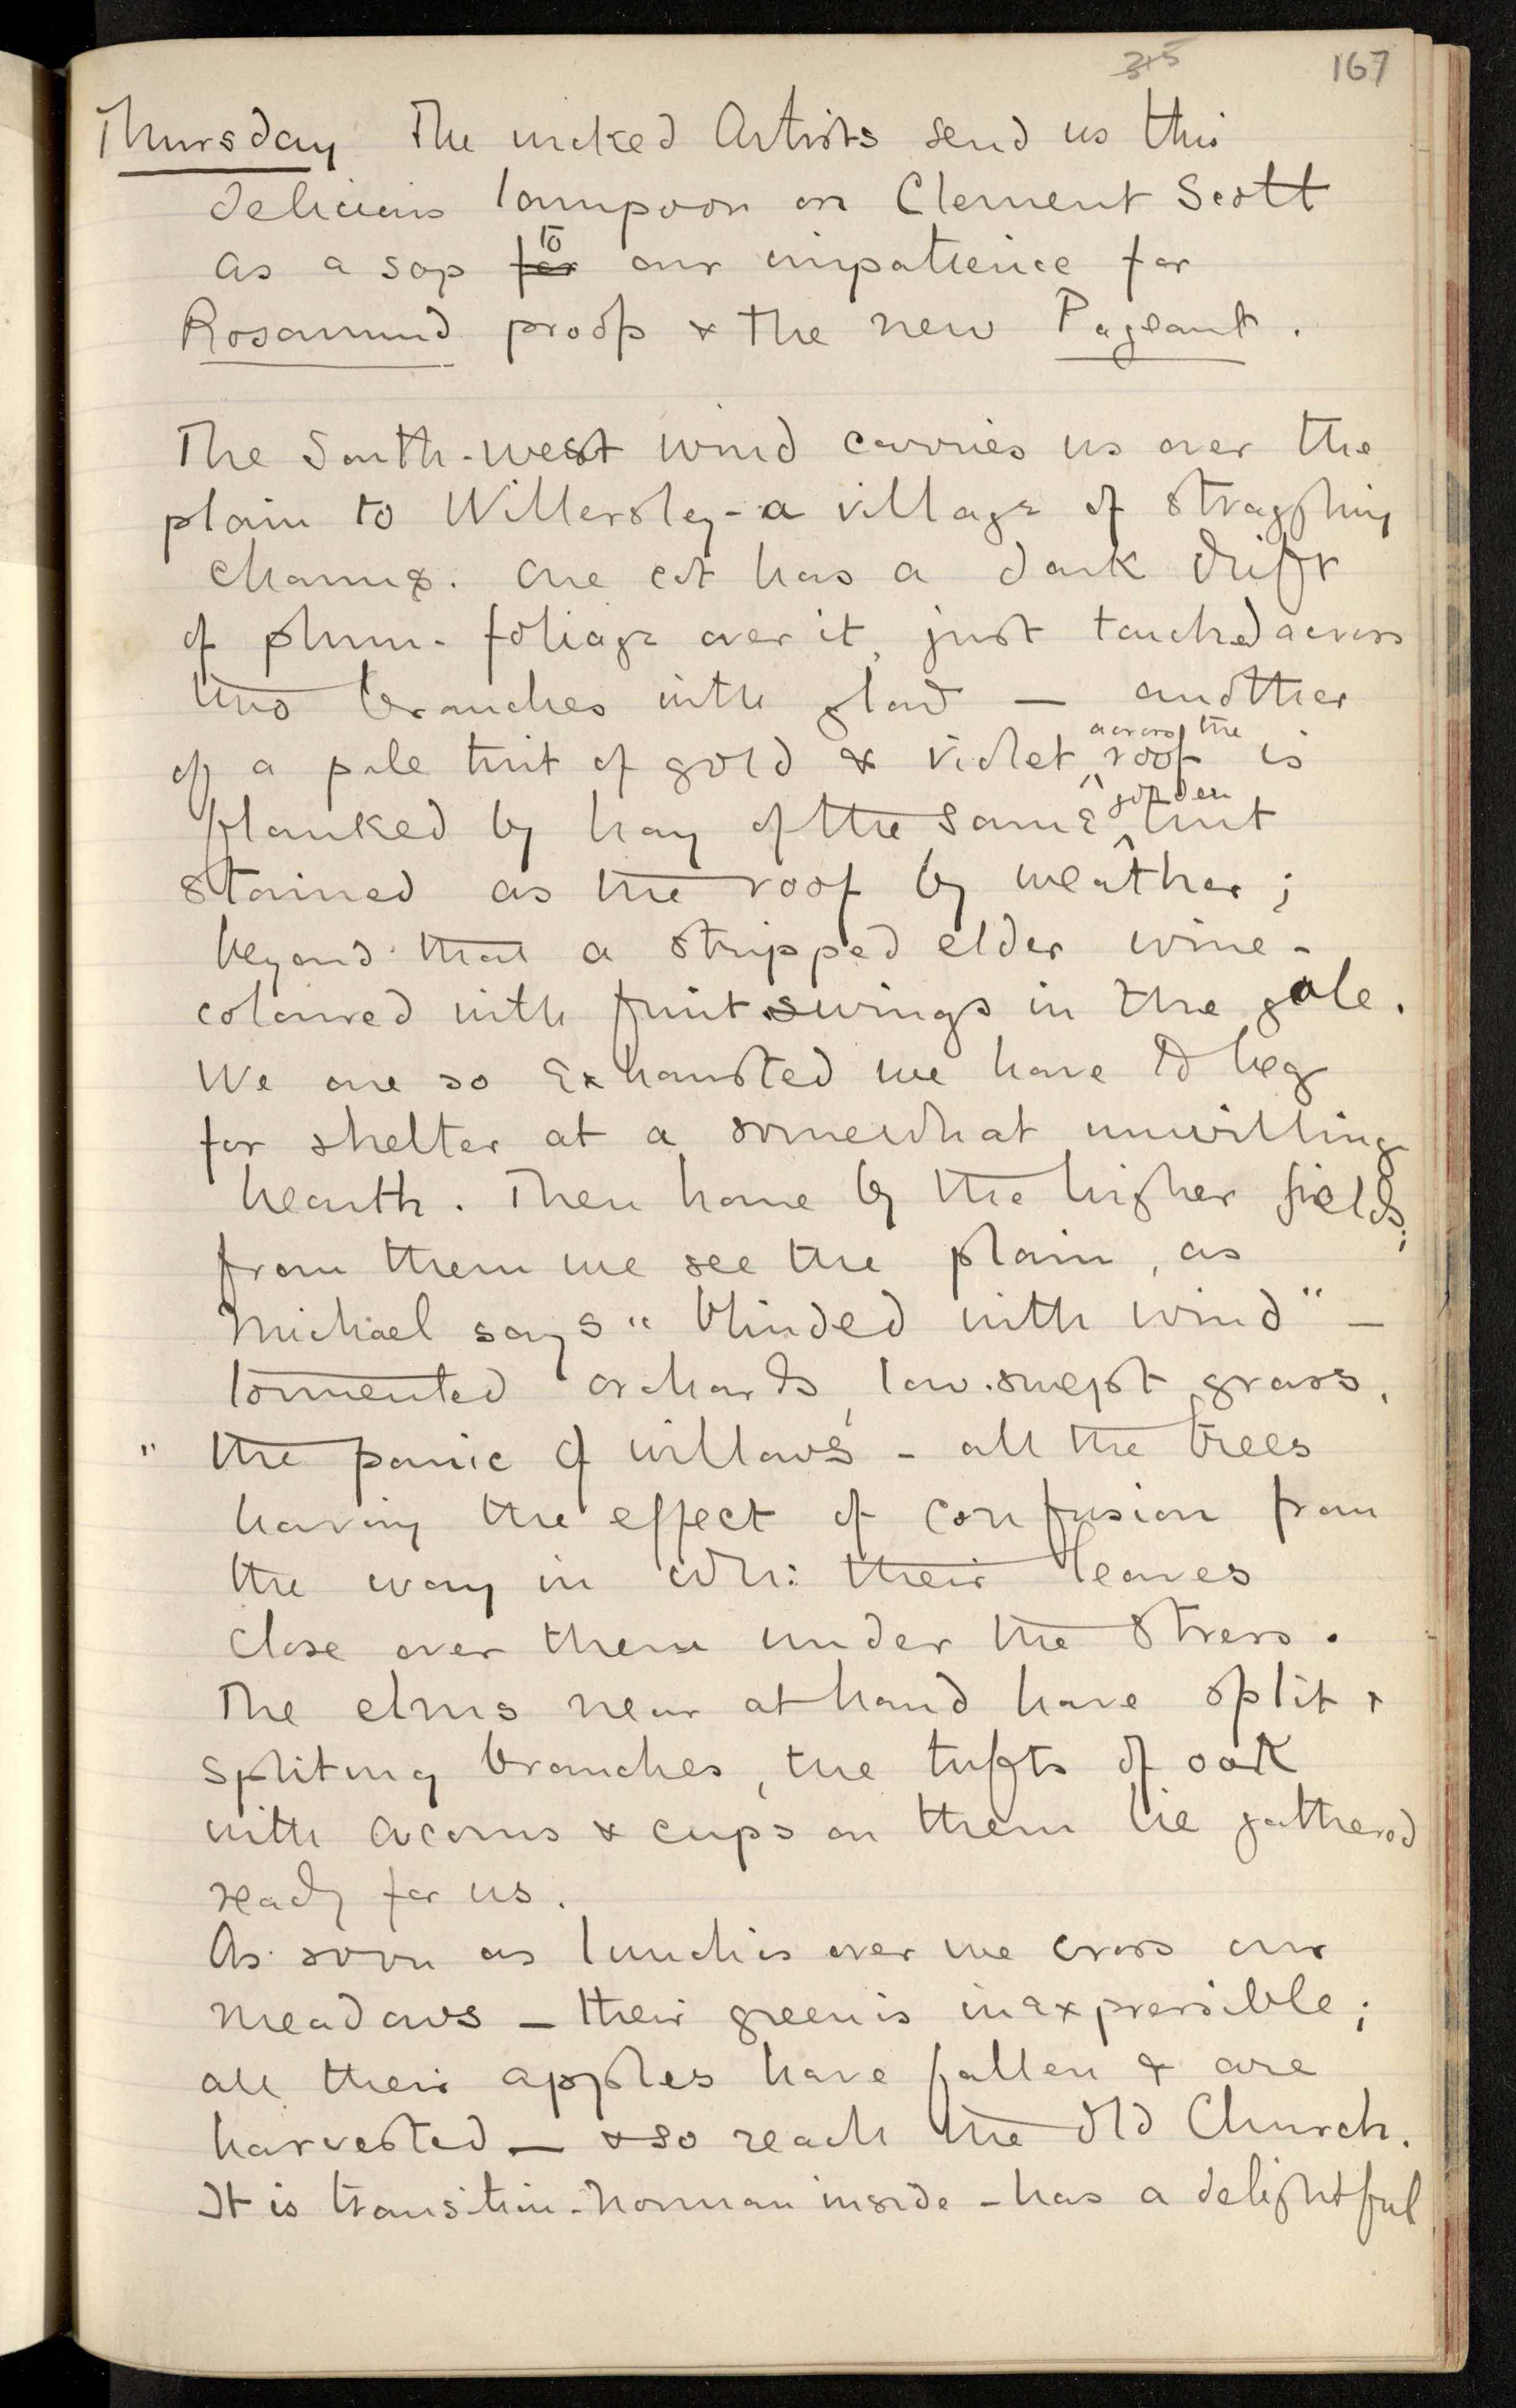 315 167
Thursday The wicked Artists send us this
delicious lampoon on Clement Scott
as a sop for to our impatience for
Rosamund proofs & the new Pageant.
The South-west wind carries us over the
plain to Willersley - a village of straggling
charms. One cot has a dark drift
of plum-foliage over it, just touched across
two branches with gold — another
of a pale tint of gold & violet across the roof is
flanked by hay of the same golden tint
stained as the roof by weather;
beyond that a stripped elder wine-
coloured with fruit swings in the gale.
We are so exhausted we have to beg
for shelter at a somewhat unwilling
hearth. Then home by the higher fields;
from them we see the plain, as
Michael says "blinded with wind" —
tormented orchards, low-swept grass,
" the panic of willows - all the trees
having the effect of confusion from
the way in wh: their leaves
close over them under the stress.
The elms near at hand have split &
spliting branches, the tufts of oak
with acorns & cups on them lie gathered
ready for us.
As soon as lunch is over we cross our
meadows — their green is inexpressible;
all their apples have fallen & are
harvested — & so reach the old Church.
It is transition-Norman inside - has a delightful